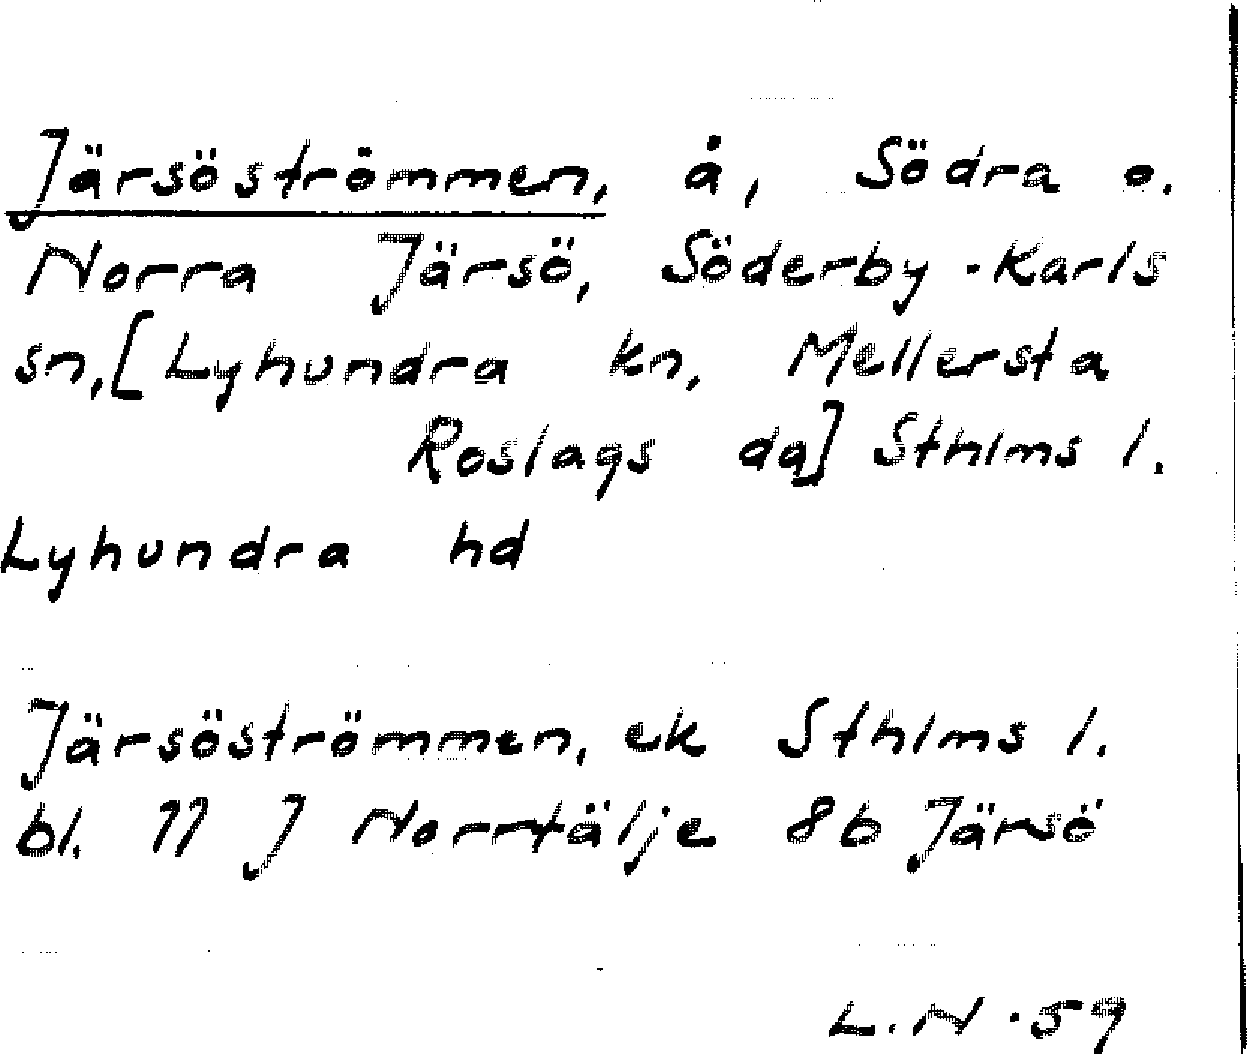 Järsöströmmen, å, Södra o.
Norra Järsö, Söderby-Karls
sn, [Lyhundra kn, Mellersta
Roslags dq] Sthlms l.
Lyhundra hd
Järsöströmmen, ek Sthlms l.
bl. 11 J Norrtälje 8b Järsö
L.N.59